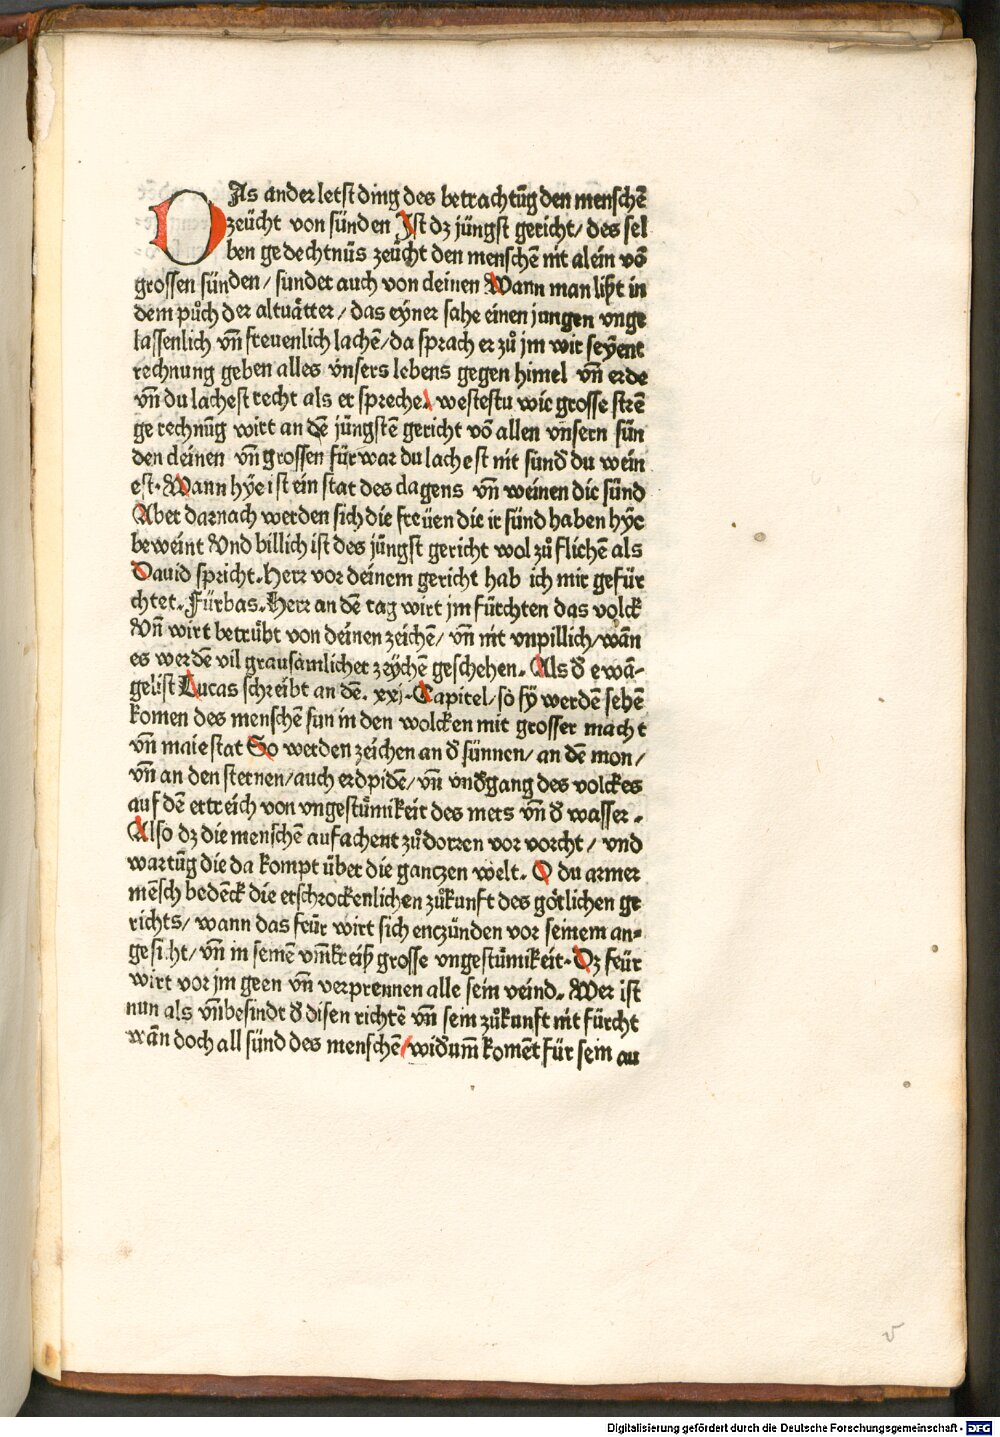 DAs ander letst ding des betrachtūg den menschē
zeücht von sünden Ist dz jüngst gericht/ des sel
ben gedechtnüs zeücht den menschē nit alein vō
grossen sünden/ sunder auch von cleinen Wann man lißt in
dem půch der altuåtter/ das eyner sahe einen jungen vnge
lassenlich vn̄ freuenlich lachē/ da sprach er zů jm wir seyent
rechnung geben alles vnsers lebens gegen himel vn̄ erde
vn̄ du lachest recht als er spreche. westestu wie grosse strē
ge rechnūg wirt an dē jüngstē gericht vō allen vnsern sün
den cleinen vn̄ grossen fürwar du lachest nit sund̄ du wein
est. Wann hÿe ist ein stat des clagens vn̄ weinen die sünd
Aber darnach werden sich die freüen die ir sünd haben hÿe
beweint Vnd billich ist des jüngst gericht wol zů flichē als
Dauid spricht. Herr vor deinem gericht hab ich mir gefür
chtet. Fürbas. Herr an dē tag wirt jm fürchten das volck
Vn̄ wirt betrübt von deinen zeichē/ vn̄ nit vnpillich/ wān
es werdē vil grausamlicher zeÿchē geschehen. Als d̄ ewā-
gelist Lucas schreibt an dē. xxj. Capitel/ so sÿ werdē sehen
komen des menschē sun in den wolcken mit grosser macht
vn̄ maiestat So werden zeichen an d̄ sünnen/ an dē mon/
vn̄ an den sternen/ auch erdpidē/ vn̄ vnd̄gang des volckes
auf dē ertreich von vngestůmikeit des mers vn̄ d̄ wasser.
Also dz die menschē aufachent zů dorren vor vorcht/ vnd
wartūg die da kompt über die ganczen welt. O du armer
mēsch bedēck die erschrockenlichen zůkunft des götlichen ge
richts/ wann das feür wirt sich enczünden vor seinem an-
gesicht/ vn̄ in seinē vm̄kreiß grosse vngestůmikeit. Dz feür
wirt vor jm geen vn̄ verprennen alle sein veind. Wer ist
nun als vn̄besindt d̄ disen richtē vn̄ sein zůkunft nit fürcht
wān doch all sünd des menschē/ wid̄um̄ komēt für sein au
v
Digitalisierung gefördert durch die Deutsche Forschungsgemeinschaft - DFG